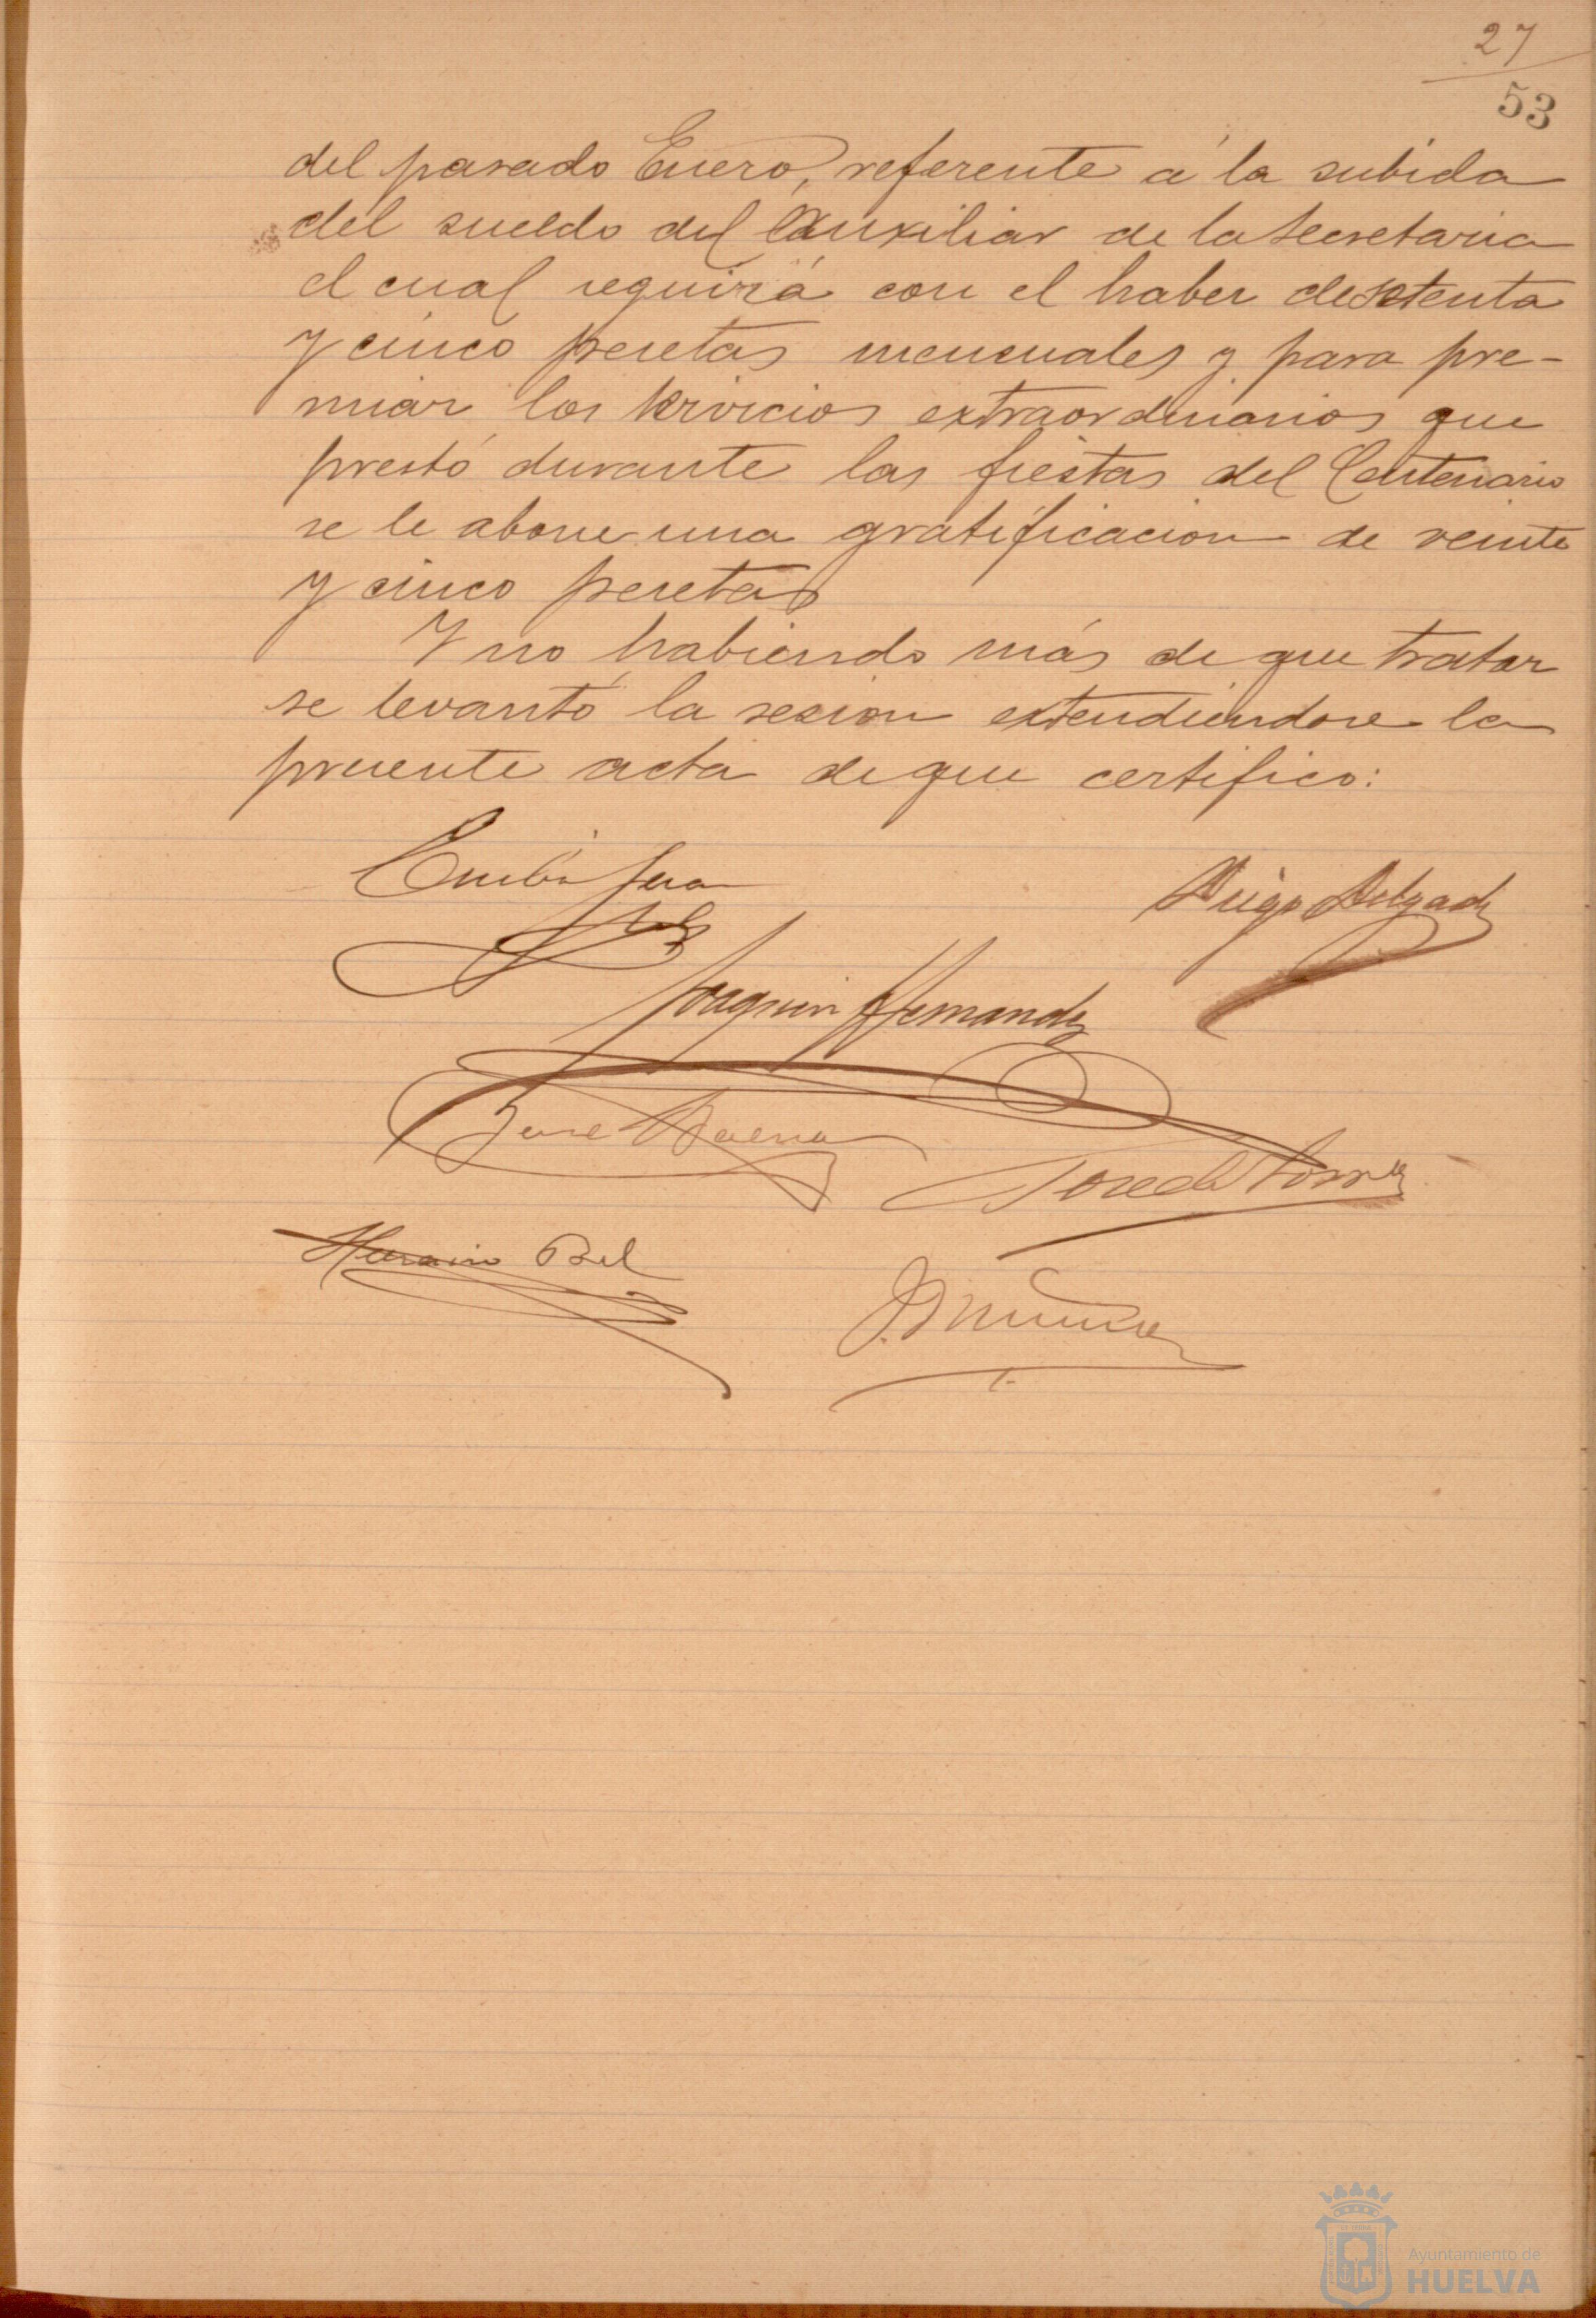 27
53
del pasado Enero, referente á la subida
del sueldo del Auxiliar de la Secretaria
el cual seguirá con el haber de setenta
y cinco pesetas mensuales y para pre-
miar los servicios extraordinarios que
prestó durante las fiestas del Centenario
se le abone una gratificacion de veinte
y cinco pesetas
Y no habiendo más de que tratar
se levantó la sesion extendiendose la
presente acta de que certifico:
Diego Delgado
Joaquin Hernandez
José Baena
José de Torres
Horacio Bel
Ayuntamiento de
HUELVA